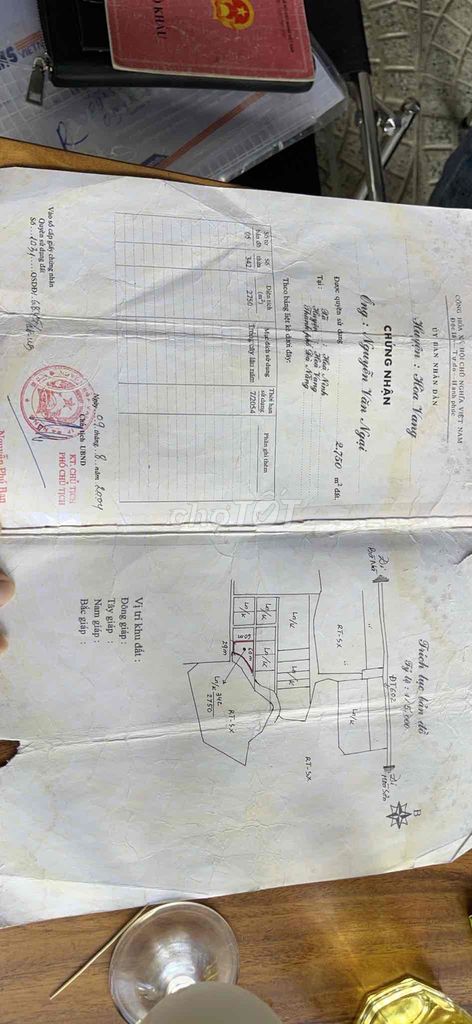 HỘ KHẨU
CỘNG HÒA XÃ HỘI CHỦ NGHĨA VIỆT NAM
Độc lập - Tự do - Hạnh phúc
ỦY BAN NHÂN DÂN
Huyện : Hòa Vang
CHỨNG NHẬN
Ông : Nguyễn Văn Ngai
Được quyền sử dụng 2.750 m² đất
Tại : Xã : Hoà Ninh
Huyện : Hoà Vang
Thành phố Đà Nẵng
Theo bảng liệt kê dưới đây:
Số tờ bản đồ Số thửa Diện tích (m²) Mục đích sử dụng Thời hạn sử dụng Phần ghi thêm
05 342 2750 Trồng cây lâu năm 7/2054
Ngày 09 tháng 8 năm 2004
Chủ tịch UBND
KT. CHỦ TỊCH
PHÓ CHỦ TỊCH
Nguyễn Phú Ban
Vào sổ cấp giấy chứng nhận
Quyền sử dụng đất
Số 1031 QSDĐ/
Trích lục bản đồ
Tỷ lệ : 1/5.000
B
Đi
ĐT 602
Đi
RT-SX
Ln/k
Ln/k
Ln/k
Ln/k
Ln/k
Ln/k
RT-SX
29m
RT-SX
342
Ln/k 2750
Vị trí khu đất :
Đông giáp :
Tây giáp :
Nam giáp :
Bắc giáp :
chợTỐT